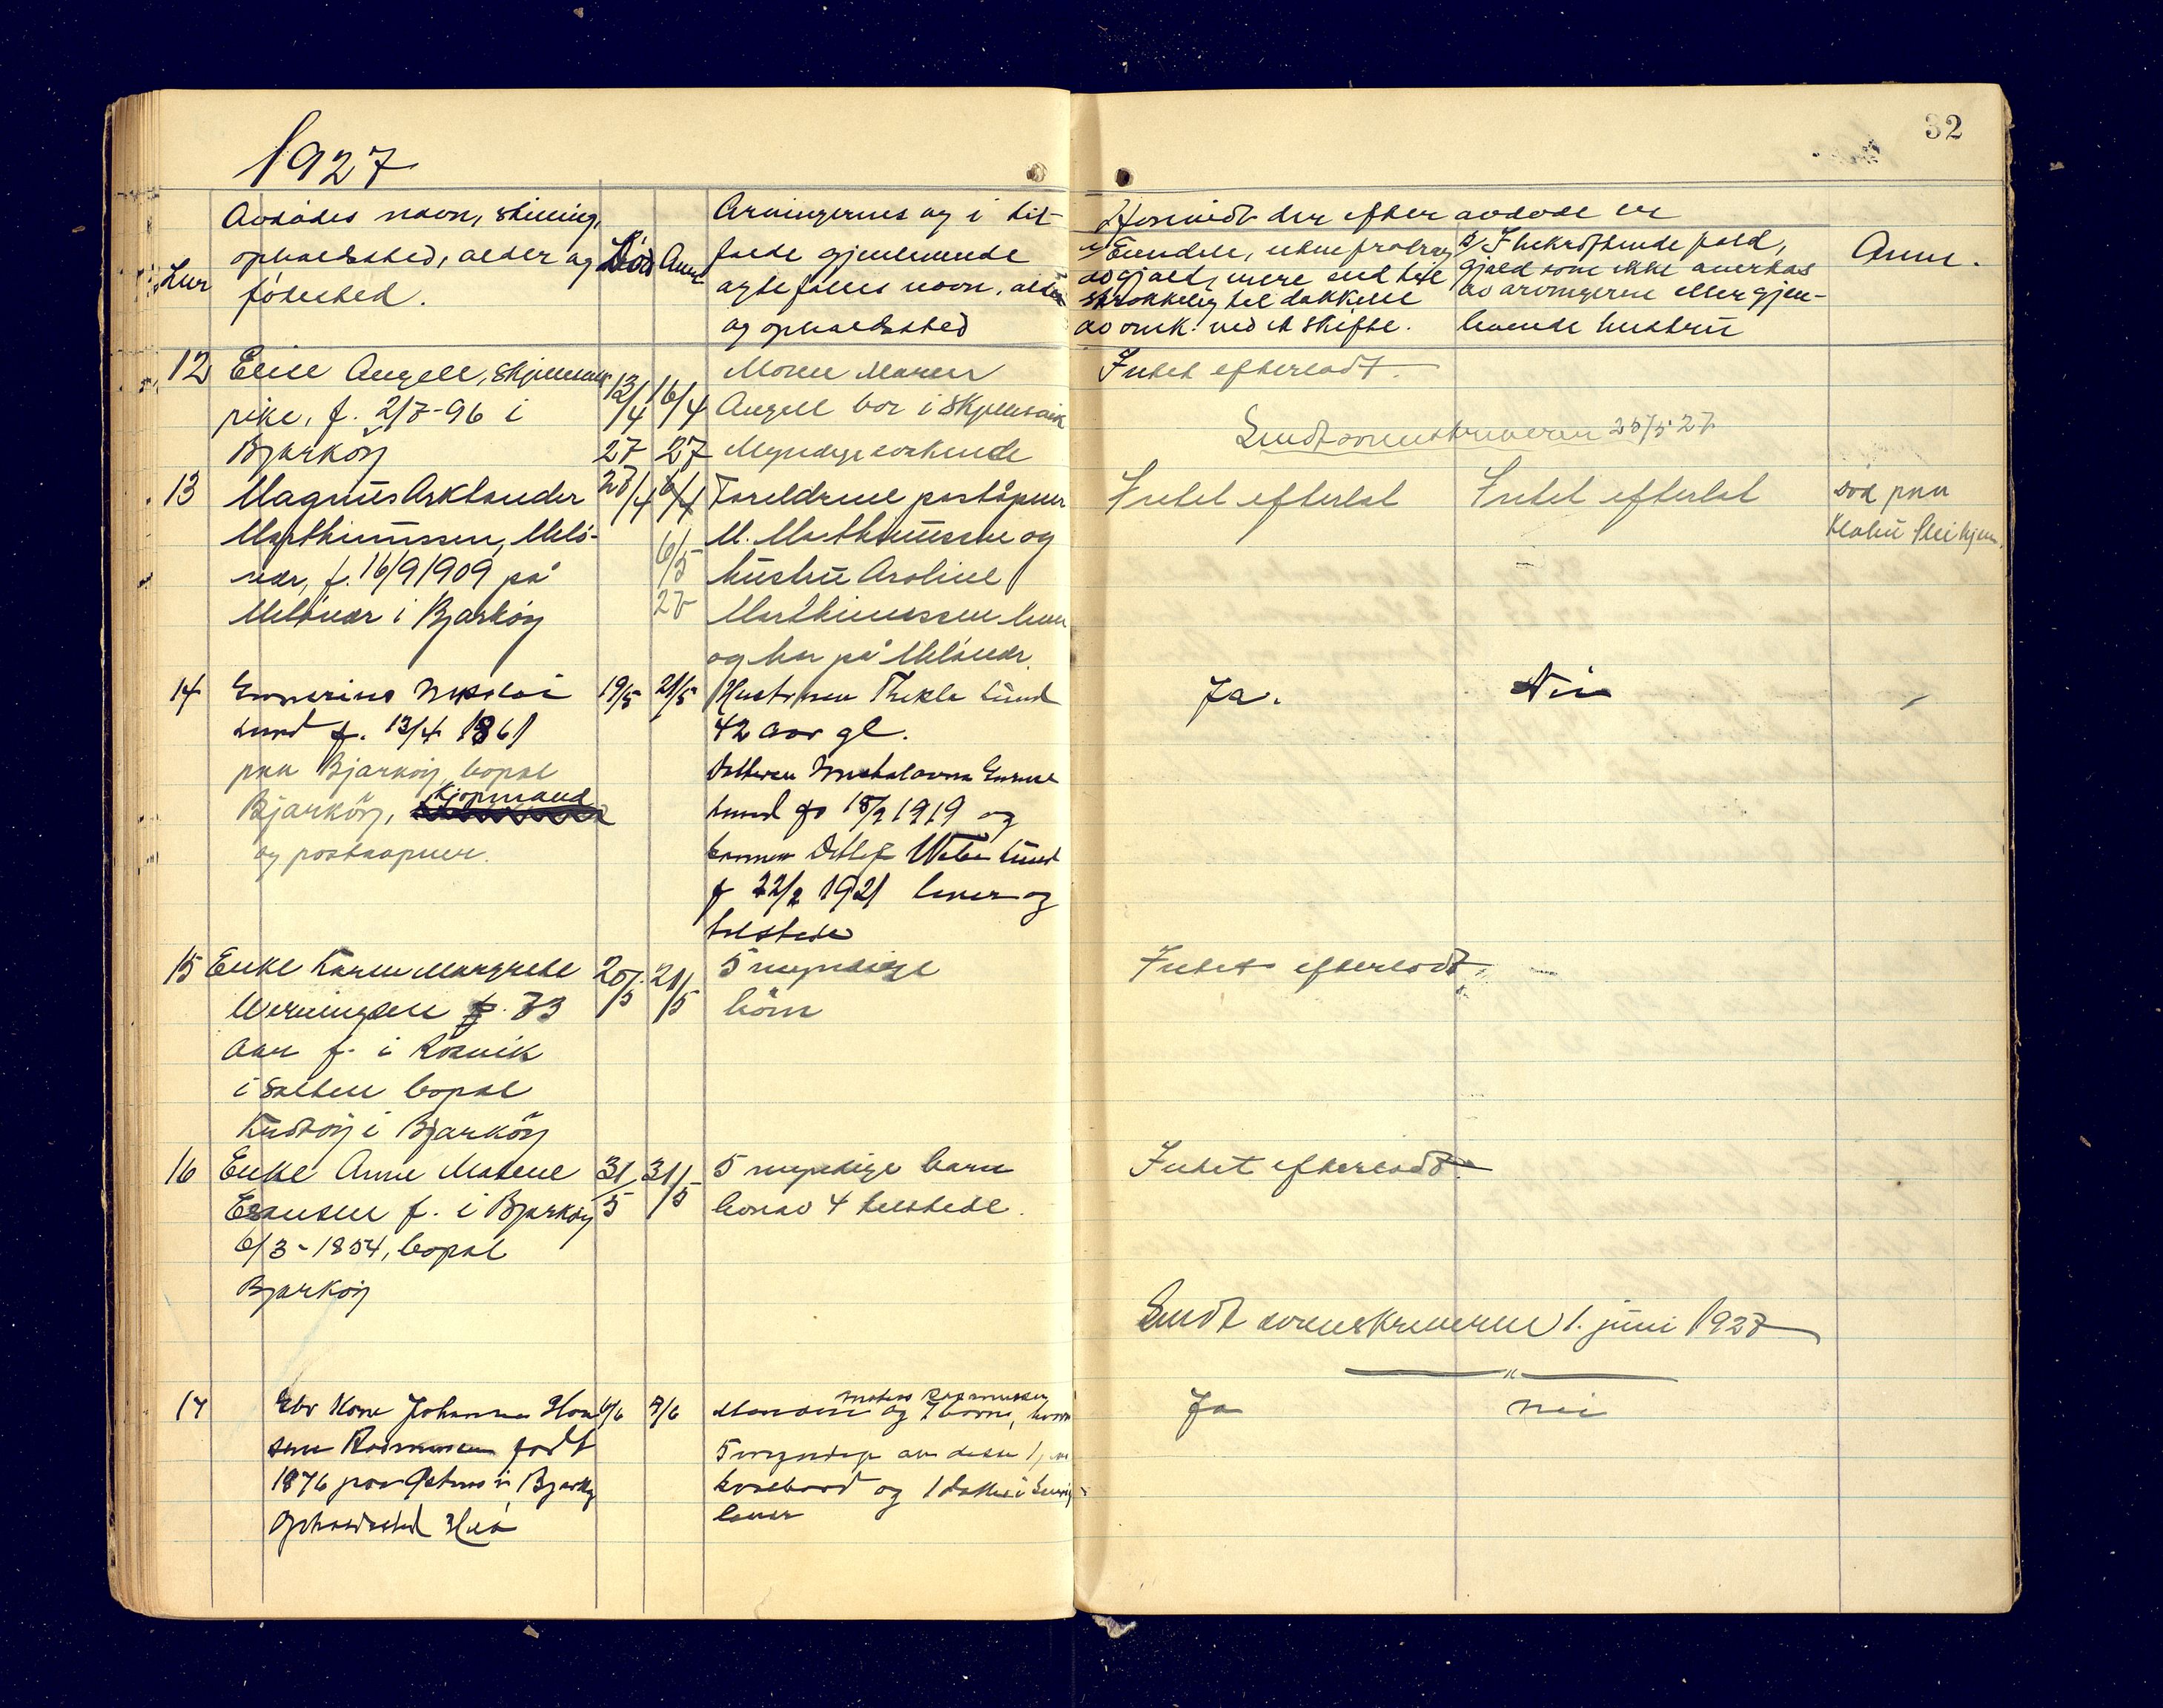 32
1927
Lnr
Avdödes navn, stilling,
opholdssted, alder og
födested.
Död
Anm
Arvingernes og i til-
fælde gjenlevende
ægtefælles navn, alder
og opholdssted
Hvorvidt der efter avdöde er
a) Eiendele, uten fradrag
av gjæld, mere end til-
strækkelig til dækkelse
av omk. ved et skifte.
b) I bekræftende fald,
gjæld som ikke anerkjendes
av arvingerne eller gjen-
levende hustru
Anm.
12
Elise Angell,
pike, f. 2/7-96 i
Bjarköy
13/4
27
16/4
27
Moren Maren
Angell bor i Skjellesvik
Myndige söskende
Intet efterladt.
Sendt sorenskriveren 25/5 27
13
Magnus Arklander
Marthinussen, Melö-
vær, f. 16/9 1909 på
Melövær i Bjarköy
28/4
6/5
27
Foreldrene poståpner
M. Marthinussen og
hustru Aroline
Marthinussen lever
og bor på Melövær.
Intet efterlat
Intet efterlat
död paa
14
Emmerius Nikolai
Lund f. 13/4 1861
paa Bjarköy, bopæl
Bjarköy, kjöpmand
og postaapner.
19/5
21/5
Hustruen Thekla Lund
42 aar gl.
Datteren
Lund f 18/9 1919 og
sönnen Detlef Lund
f 22/2 1921 lever og
tilstede
Ja.
Nei
15
Enke Karen Margrethe
Werningsen f. 73
aar f. i Rösvik
i Salten bopæl
Krödöy i Bjarköy
20/5
21/5
5 myndige
börn
Intet efterladt.
16
Enke Anne Matene
Esansen f. i Bjarköy
6/3-1854, bopæl
Bjarköy
31/5
31/5
5 myndige barn
hvorav 4 tilstede.
Intet efterladt.
Sendt sorenskriveren 1. juni 1927
17
Gbr Kone Johanna Han
sen Rasmussen födt
1876 paa i Bjarköy
Opholdssted
6/6
7/6
Rasmussen
Manden og 7 börn, hvorav
5 myndige av disse 1
og 1 datter i
lever
Ja
nei